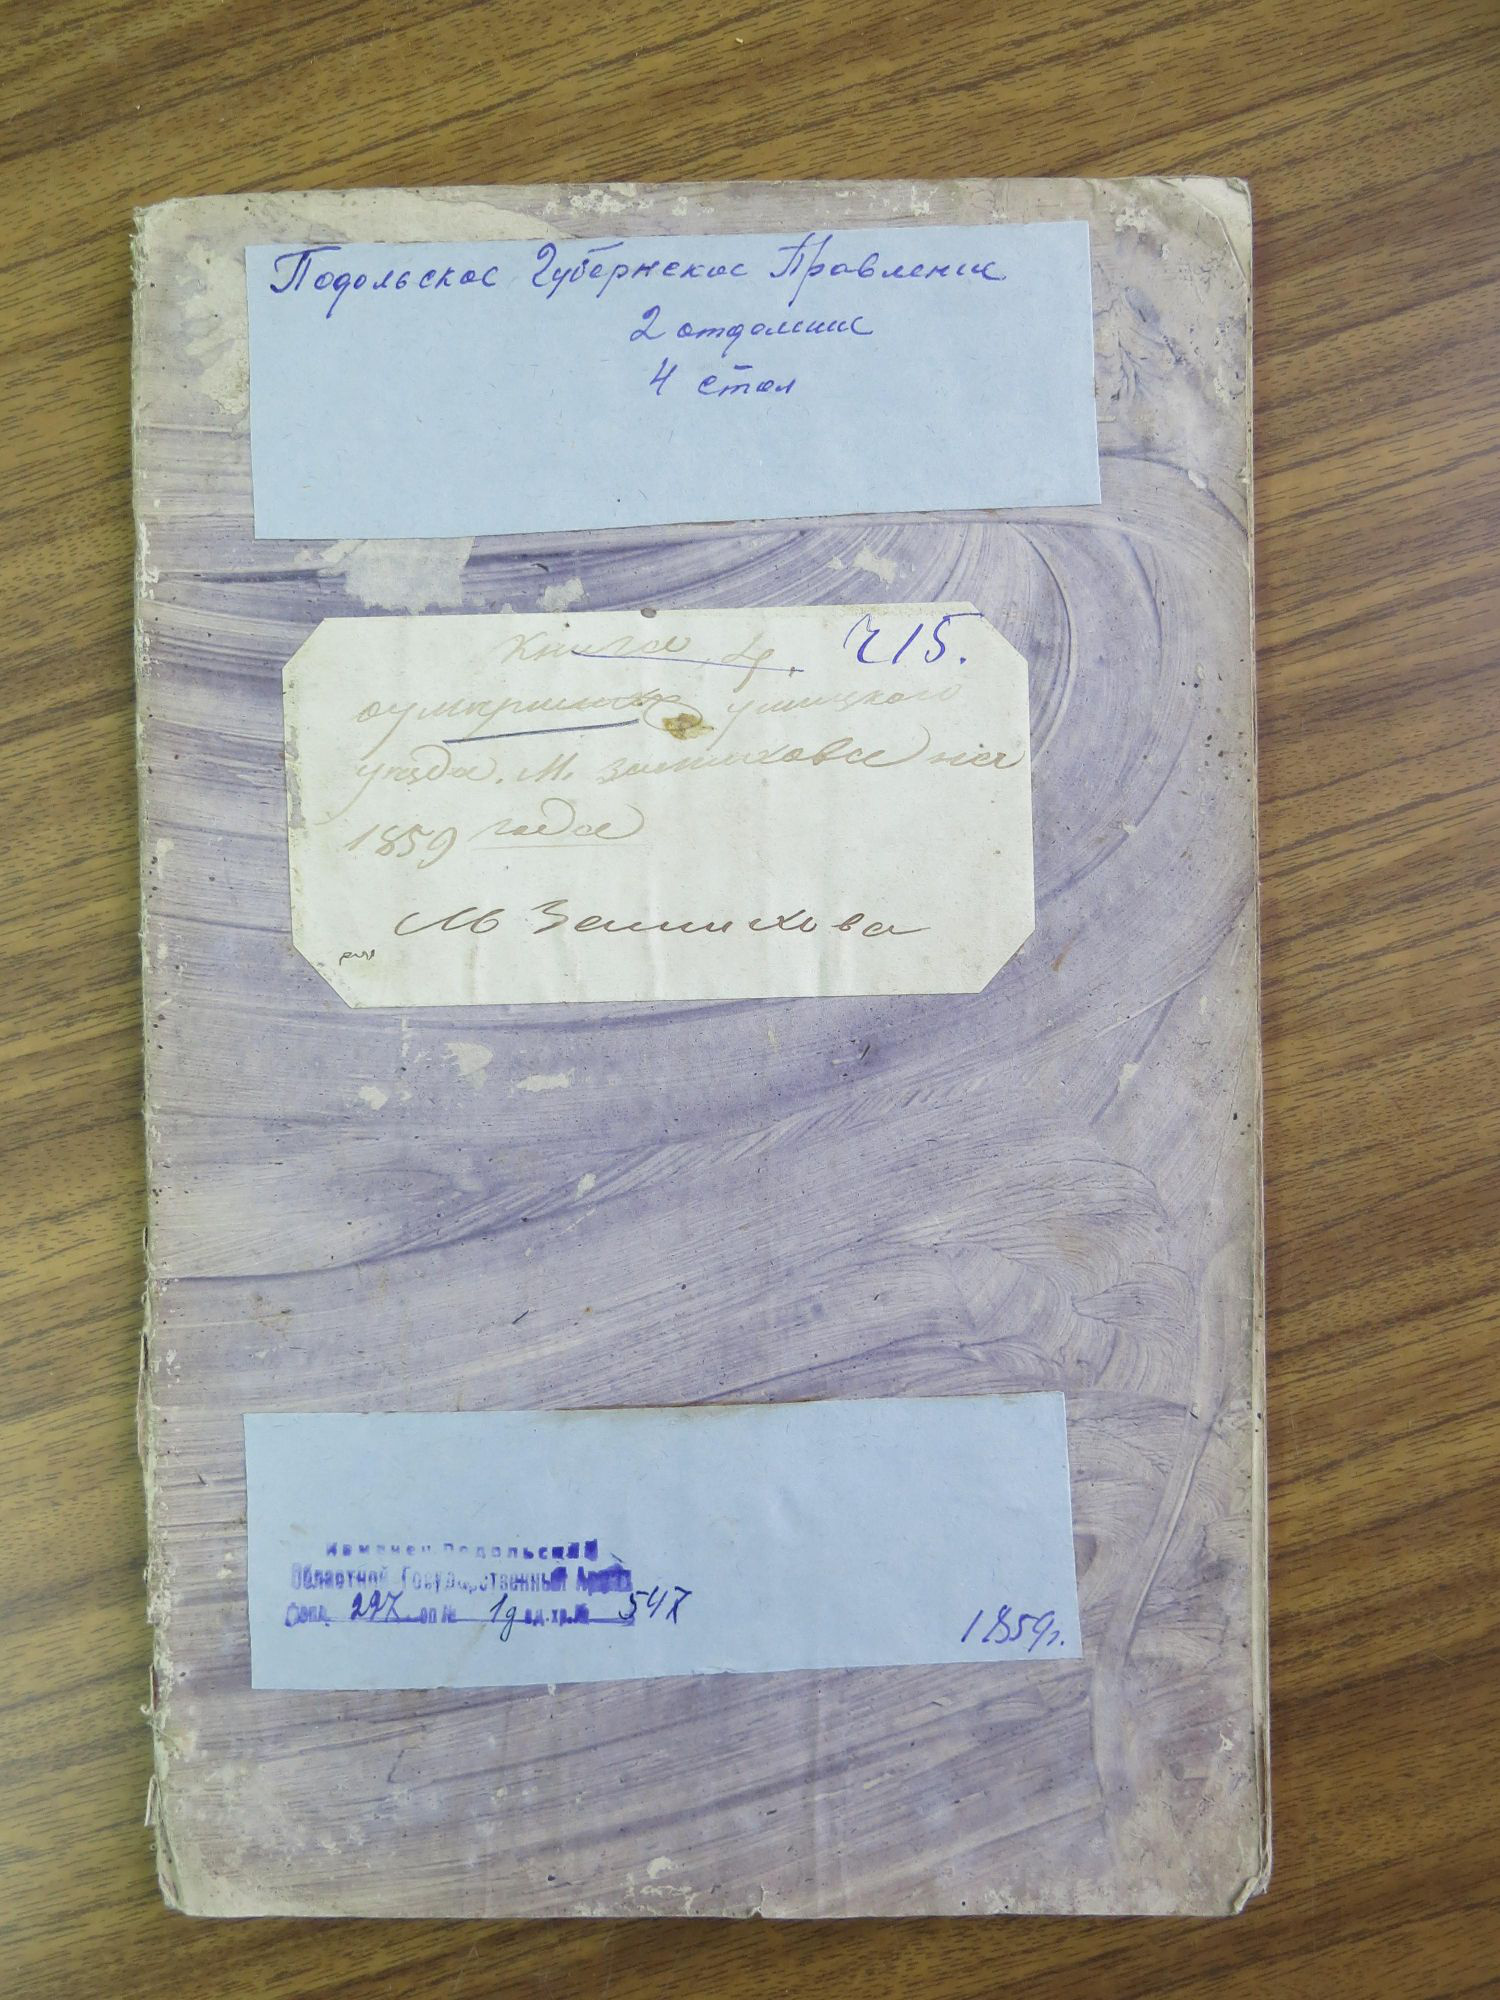 Подольское Губернское Правление
2 отделение
4 стол
Книга 4. 715.
о умерших ушицкого
уезда. М. Замихова на
1859 года
М Замихова
Каменец-Подольский
Областной Государственный Архив
Фонд 227 оп № 1д ед.хр.№ 547
1859г.